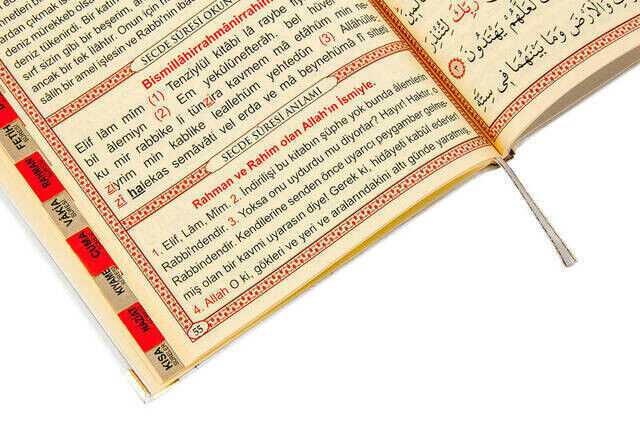 deniz mürekkep olsa
deniz tükenirdi. Bir katı
sırf sizin gibi bir beşerim, an
ancak bir tek ilahtır. Onun için h
sâlih bir amel işlesin ve Rabbi'nin ibad
SECDE SÛRESİ OKUN
Bismillâhirrahmânirrahîm
Elif lâm mîm (1) Tenzîylül kitâbi lâ raybe
bil âlemiyn (2) Em yekûlûnefterâh. bel
ku mir rabbike li tünzira kavmem mâ etâhüm min ne
ziyrim min kablike leallehüm yehtedûn (3) Allâhülle
zî halekas semâvâti vel erda ve mâ beynehümâ fî sitteti
SECDE SÛRESİ ANLAMI
Rahman ve Rahim olan Allah'ın İsmiyle.
1. Elif, Lâm, Mîm. 2. İndirilişi bu kitabın şüphe yok bunda âlemlerin
Rabbi'ndendir. 3. Yoksa onu uydurdu mu diyorlar? Hayır! Haktır, o
Rabbindendir. Kendilerine senden önce uyarıcı peygamber gelme-
miş olan bir kavmi uyarasın diye! Gerek ki, hidâyeti kabûl ederler!
4. Allah O ki, gökleri ve yeri ve aralarındakini altı günde yaratmış,
55
FETİH
RAHMAN
VÂKIA
CUMA
KIYAME
NAZİAT
KISA
SÛRELER
رَبِّكَ لِتُنْذِرَ
لَعَلَّهُمْ يَهْتَدُونَ
وَالْاَرْضَ وَمَا بَيْنَهُمَا فِي سِتَّةِ